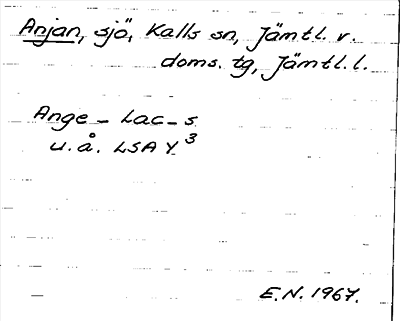 Anjan, sjö, Kalls sn, Jämtl. v.
doms. tg, Jämtl. l.
Ange - Lac - s
u. å. LSA Y 3
E.N. 1967.